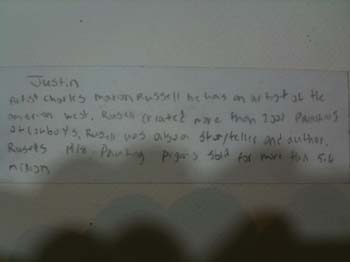 Justin
Artist Charles marion Russell he was an artist of the
american west. Russell created more than 2000 Paintings
of cowboys, Rusell was also a storyteller and author.
Rusells Painting Pigans sold for more than 5.6
million